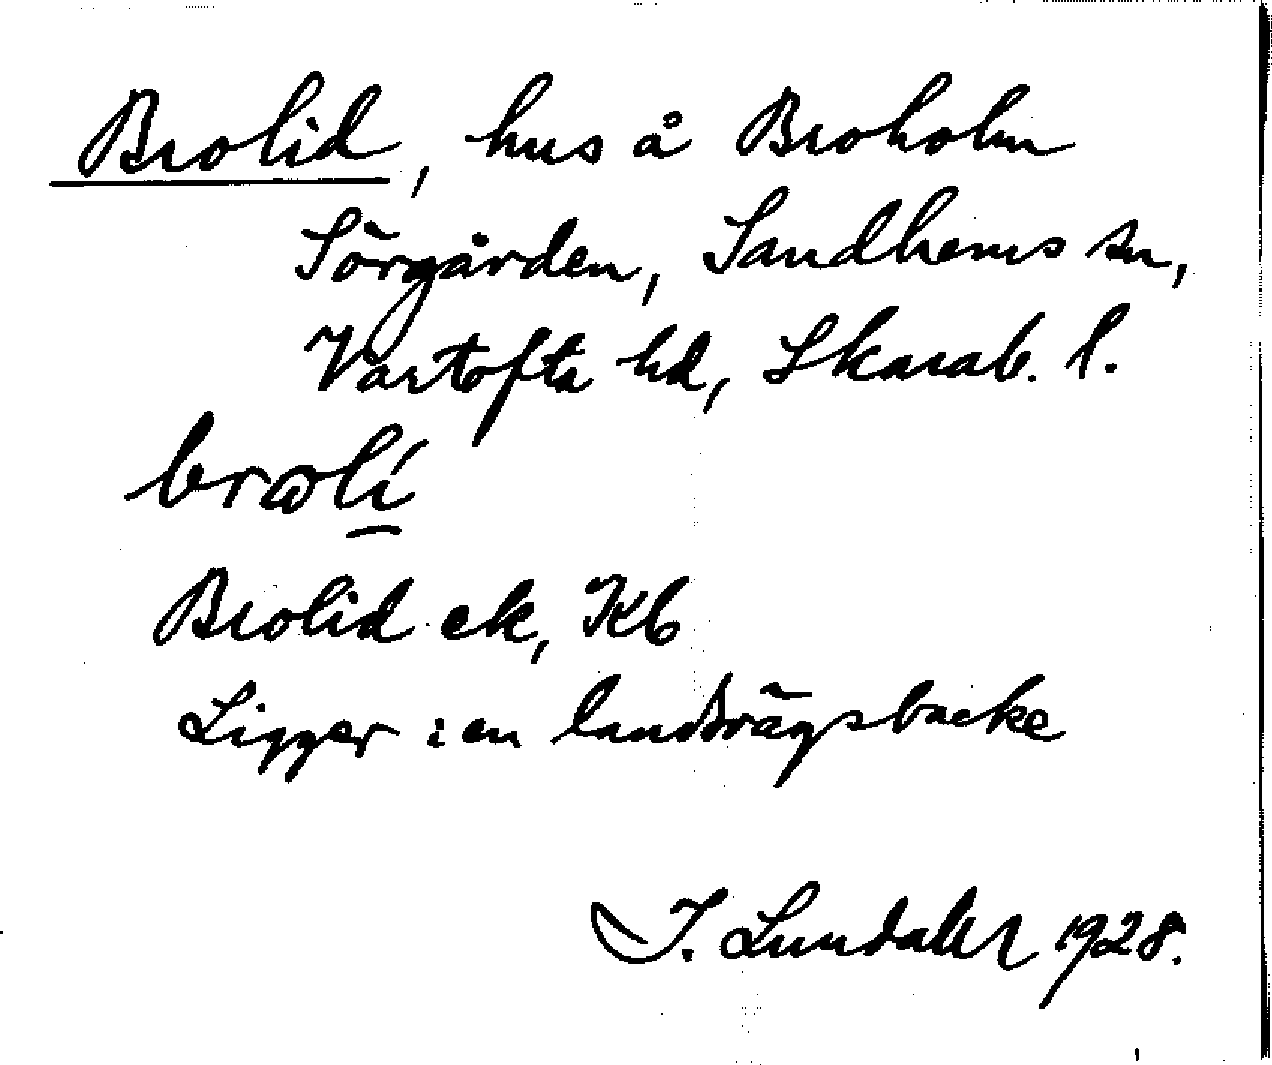 Brolid, hus å Broholm
Sörgården, Sandhems sn,
Vartofta hd, Skarab. l.
broli
Brolid ek, Kb
Ligger i en landsvägsbacke
J. Lundahl 1928.